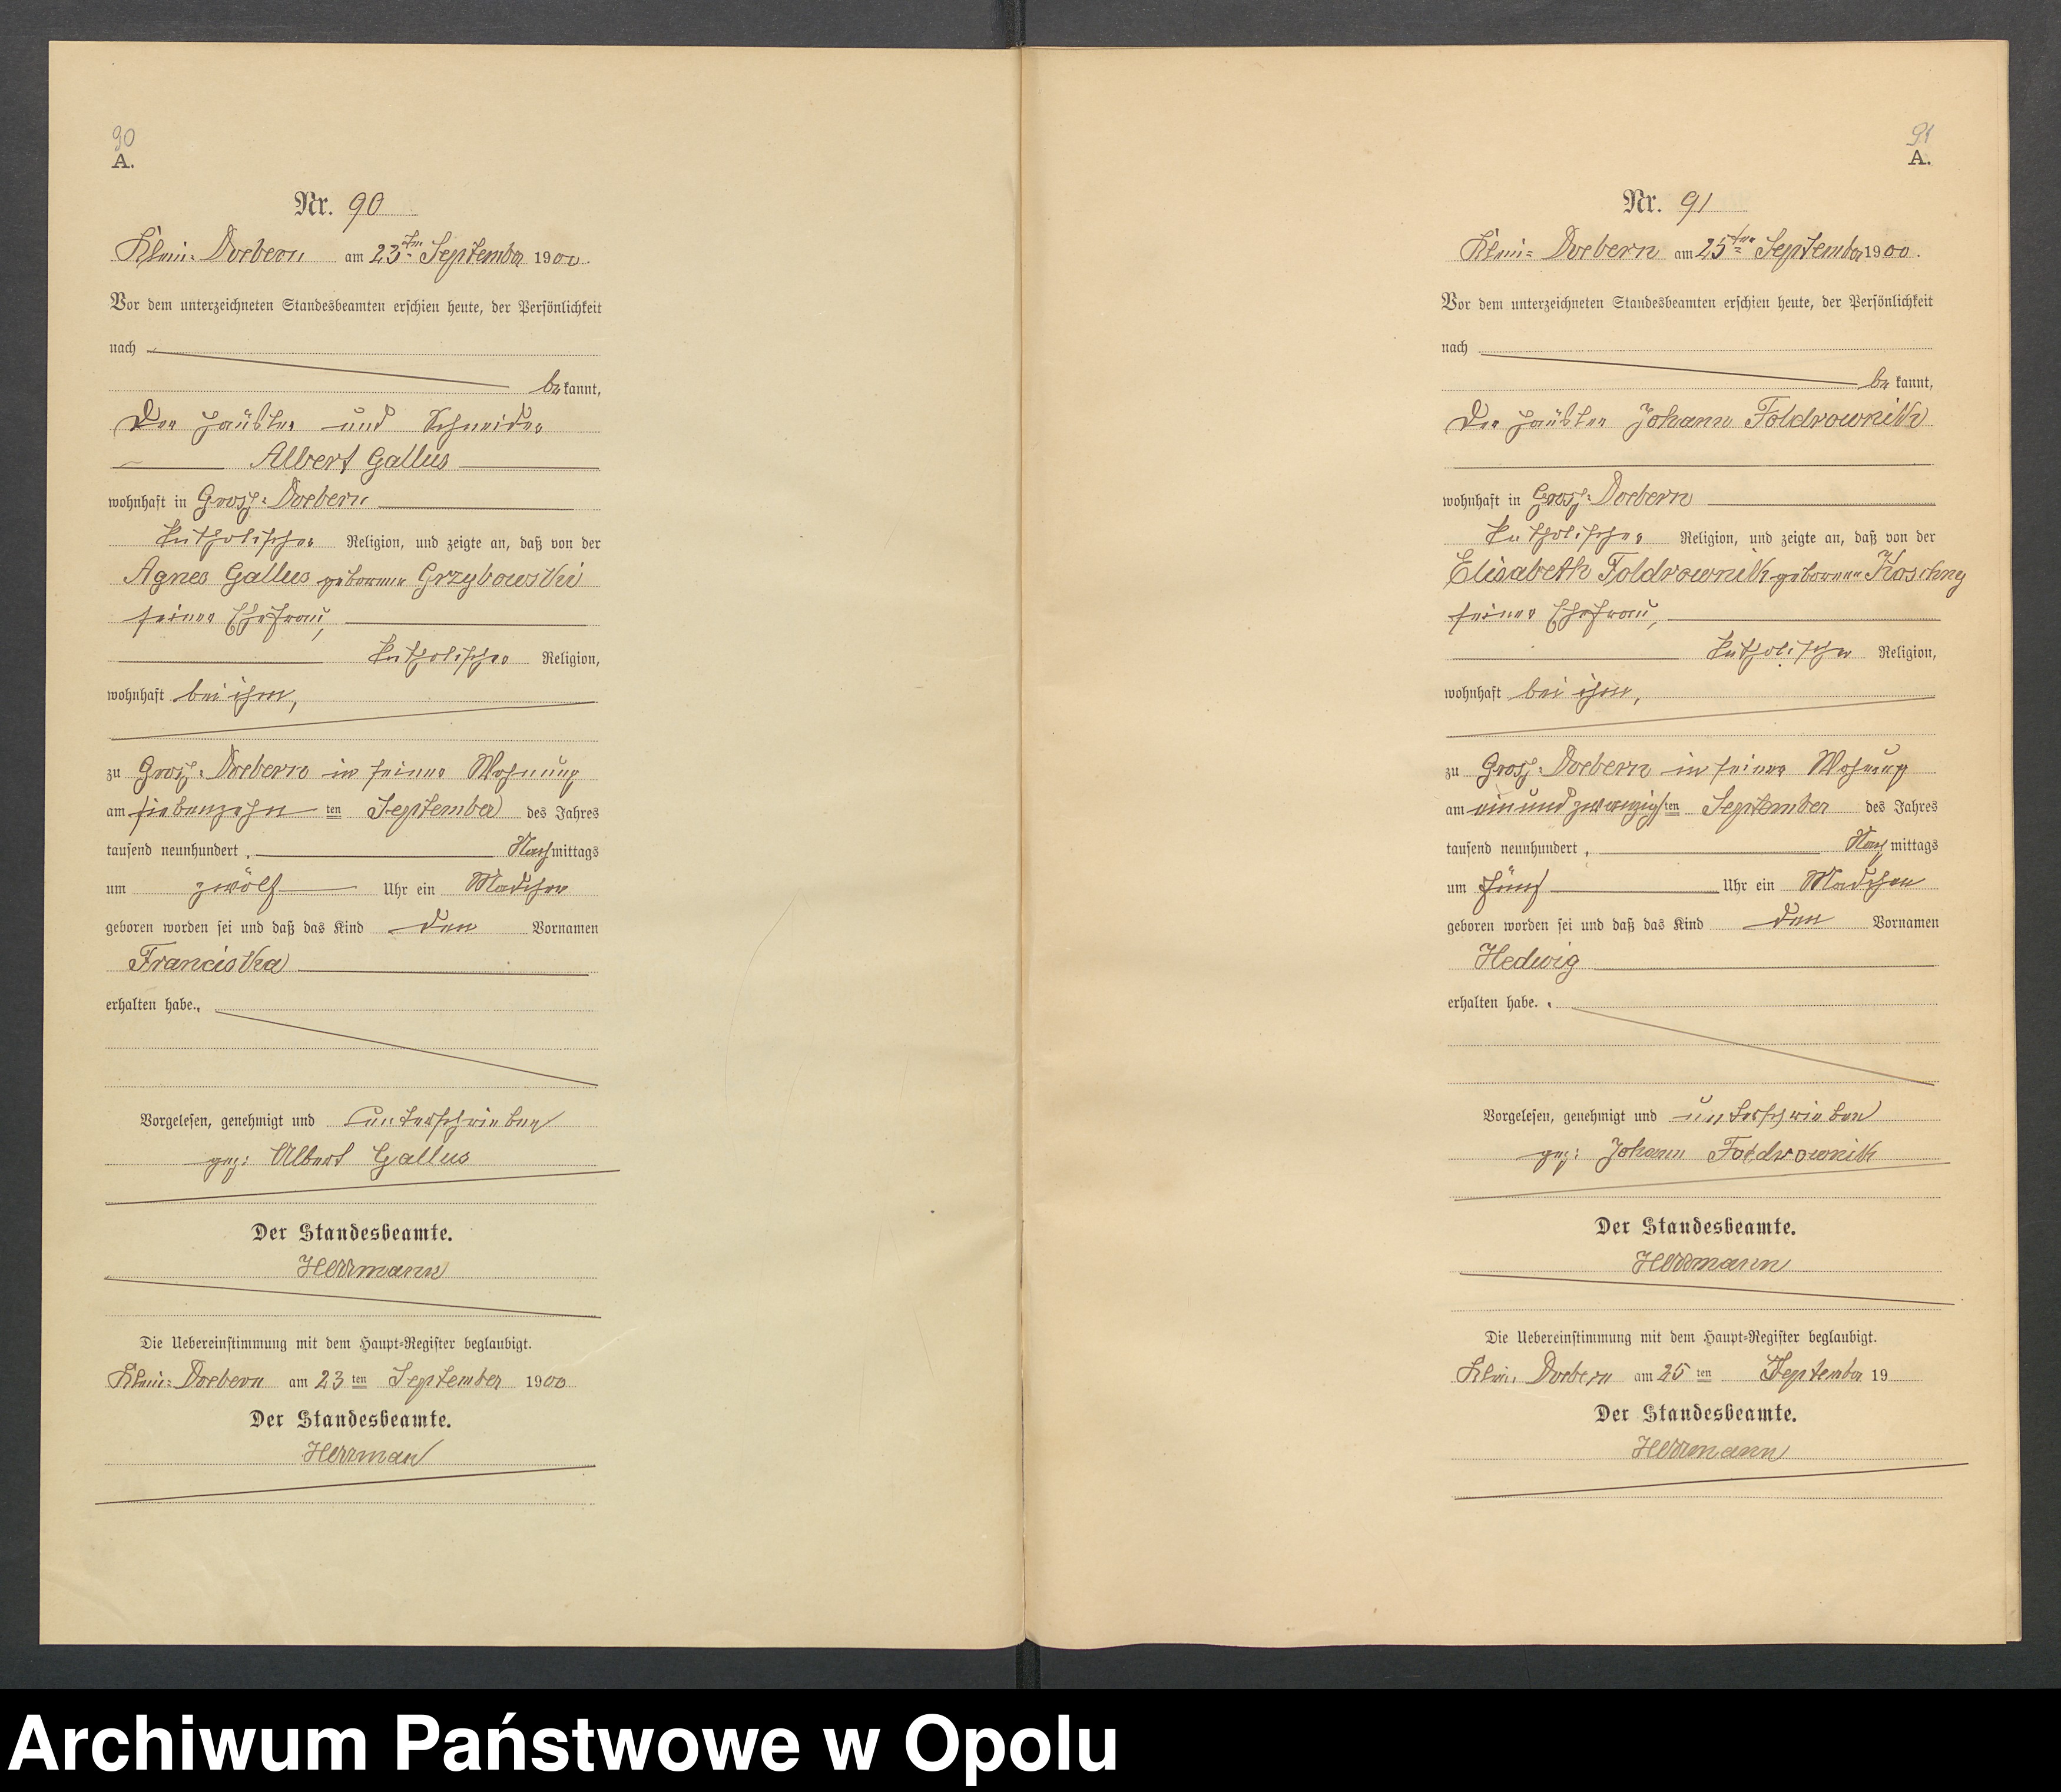 90
A.
Nr. 90
Klein-Doebern am 23ten September 1900.
Vor dem unterzeichneten Standesbeamten erschien heute, der Persönlichkeit
nach
be kannt,
der Häusler und Schneider
Albert Gallus
wohnhaft in Gross-Doebern
katholischer Religion, und zeigte an, daß von der
Agnes Gallus geborene Grzybowski
seiner Ehefrau,
katholischer Religion,
wohnhaft bei ihm,
zu Gross-Doebern in seiner Wohnung
am siebenzehn ten September des Jahres
tausend neunhundert, Nachmittags
um zwölf Uhr ein Mädchen
geboren worden sei und daß das Kind den Vornamen
Franciska
erhalten habe.
Vorgelesen, genehmigt und unterschrieben
gez: Albert Gallus
Der Standesbeamte.
Herrmann
Die Uebereinstimmung mit dem Haupt-Register beglaubigt.
Klein-Doebern am 23 ten September 1900
Der Standesbeamte.
Herrman
91
A.
Nr. 91
Klein-Doebern am 25ten September 1900.
Vor dem unterzeichneten Standesbeamten erschien heute, der Persönlichkeit
nach
be kannt,
der Häusler Johann Foldrownik
wohnhaft in Gross-Doebern
katholischer Religion, und zeigte an, daß von der
Elisabeth Foldrownik geborene Koschny
seiner Ehefrau,
katholischer Religion,
wohnhaft bei ihm,
zu Gross-Doebern in seiner Wohnung
am einundzwanzigsten September des Jahres
tausend neunhundert, Nachmittags
um fünf Uhr ein Mädchen
geboren worden sei und daß das Kind den Vornamen
Hedwig
erhalten habe.
Vorgelesen, genehmigt und unterschrieben
gez: Johann Foldrownik
Der Standesbeamte.
Herrmann
Die Uebereinstimmung mit dem Haupt-Register beglaubigt.
Klein-Doebern am 25 ten September 19
Der Standesbeamte.
Herrmann
Archiwum Państwowe w Opolu